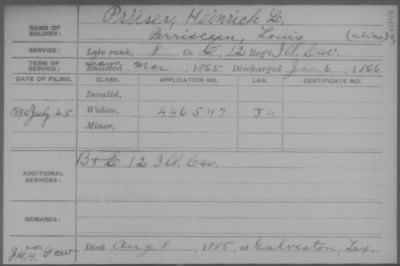 NAME OF SOLDIER: Prüser, Heinrich L.
Louis (alias)
SERVICE: Late rank, Co. C, 12 Reg't Ill. Cav.
TERM OF SERVICE: Enlisted Mar, 1865 Discharged June 6, 1866
DATE OF FILING. CLASS. APPLICATION NO. LAW. CERTIFICATE NO.
Invalid,
July 25 Widow, 446547
Minor,
ADDITIONAL SERVICES: B & E 12 Ill. Cav.
REMARKS:
Died Aug 8, 1885, at Galveston, Tex.